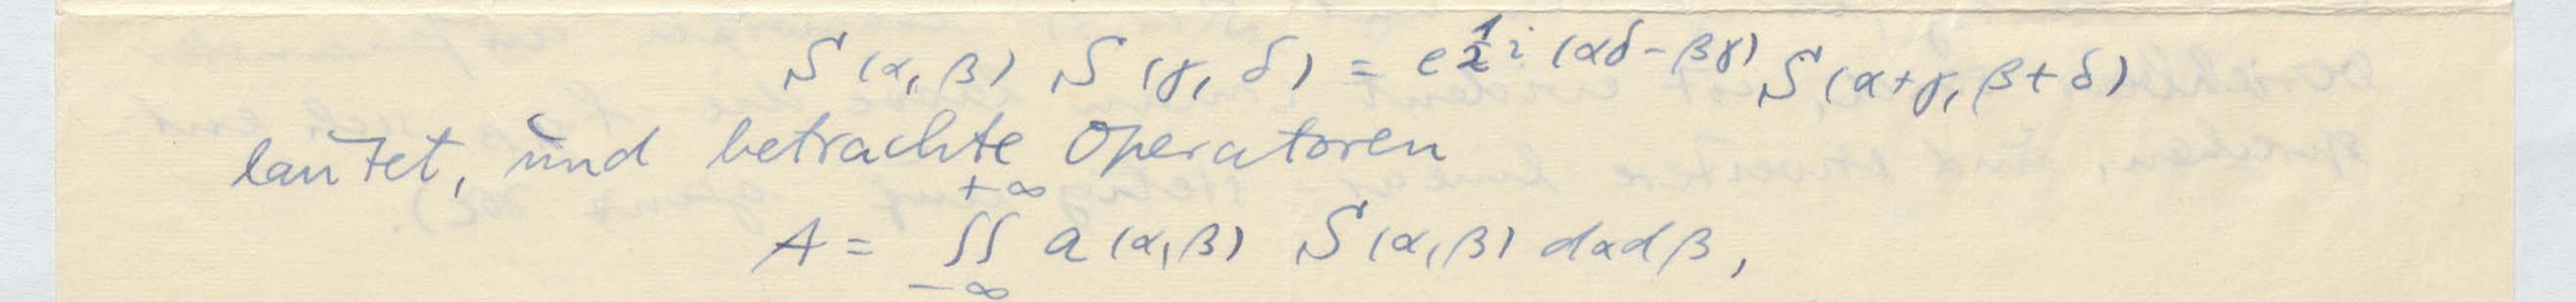 S(α, β) S(γ, δ) = e^{½ i (αδ − βγ)} S(α+γ, β+δ)
lautet, und betrachte Operatoren
A = ∬_{−∞}^{+∞} a(α, β) S(α, β) dαdβ,